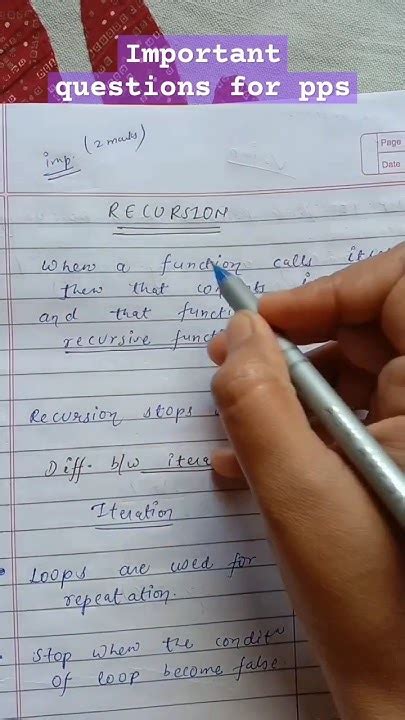 Important
questions for pps
Page
Date
(2 marks)
imp.
RECURSION
When a function calls
then that
and that
recursive
Recursion stops
Diff. b/w
Iteration
Loops are used for
repeatation.
Stop when the conditn
of loop become false